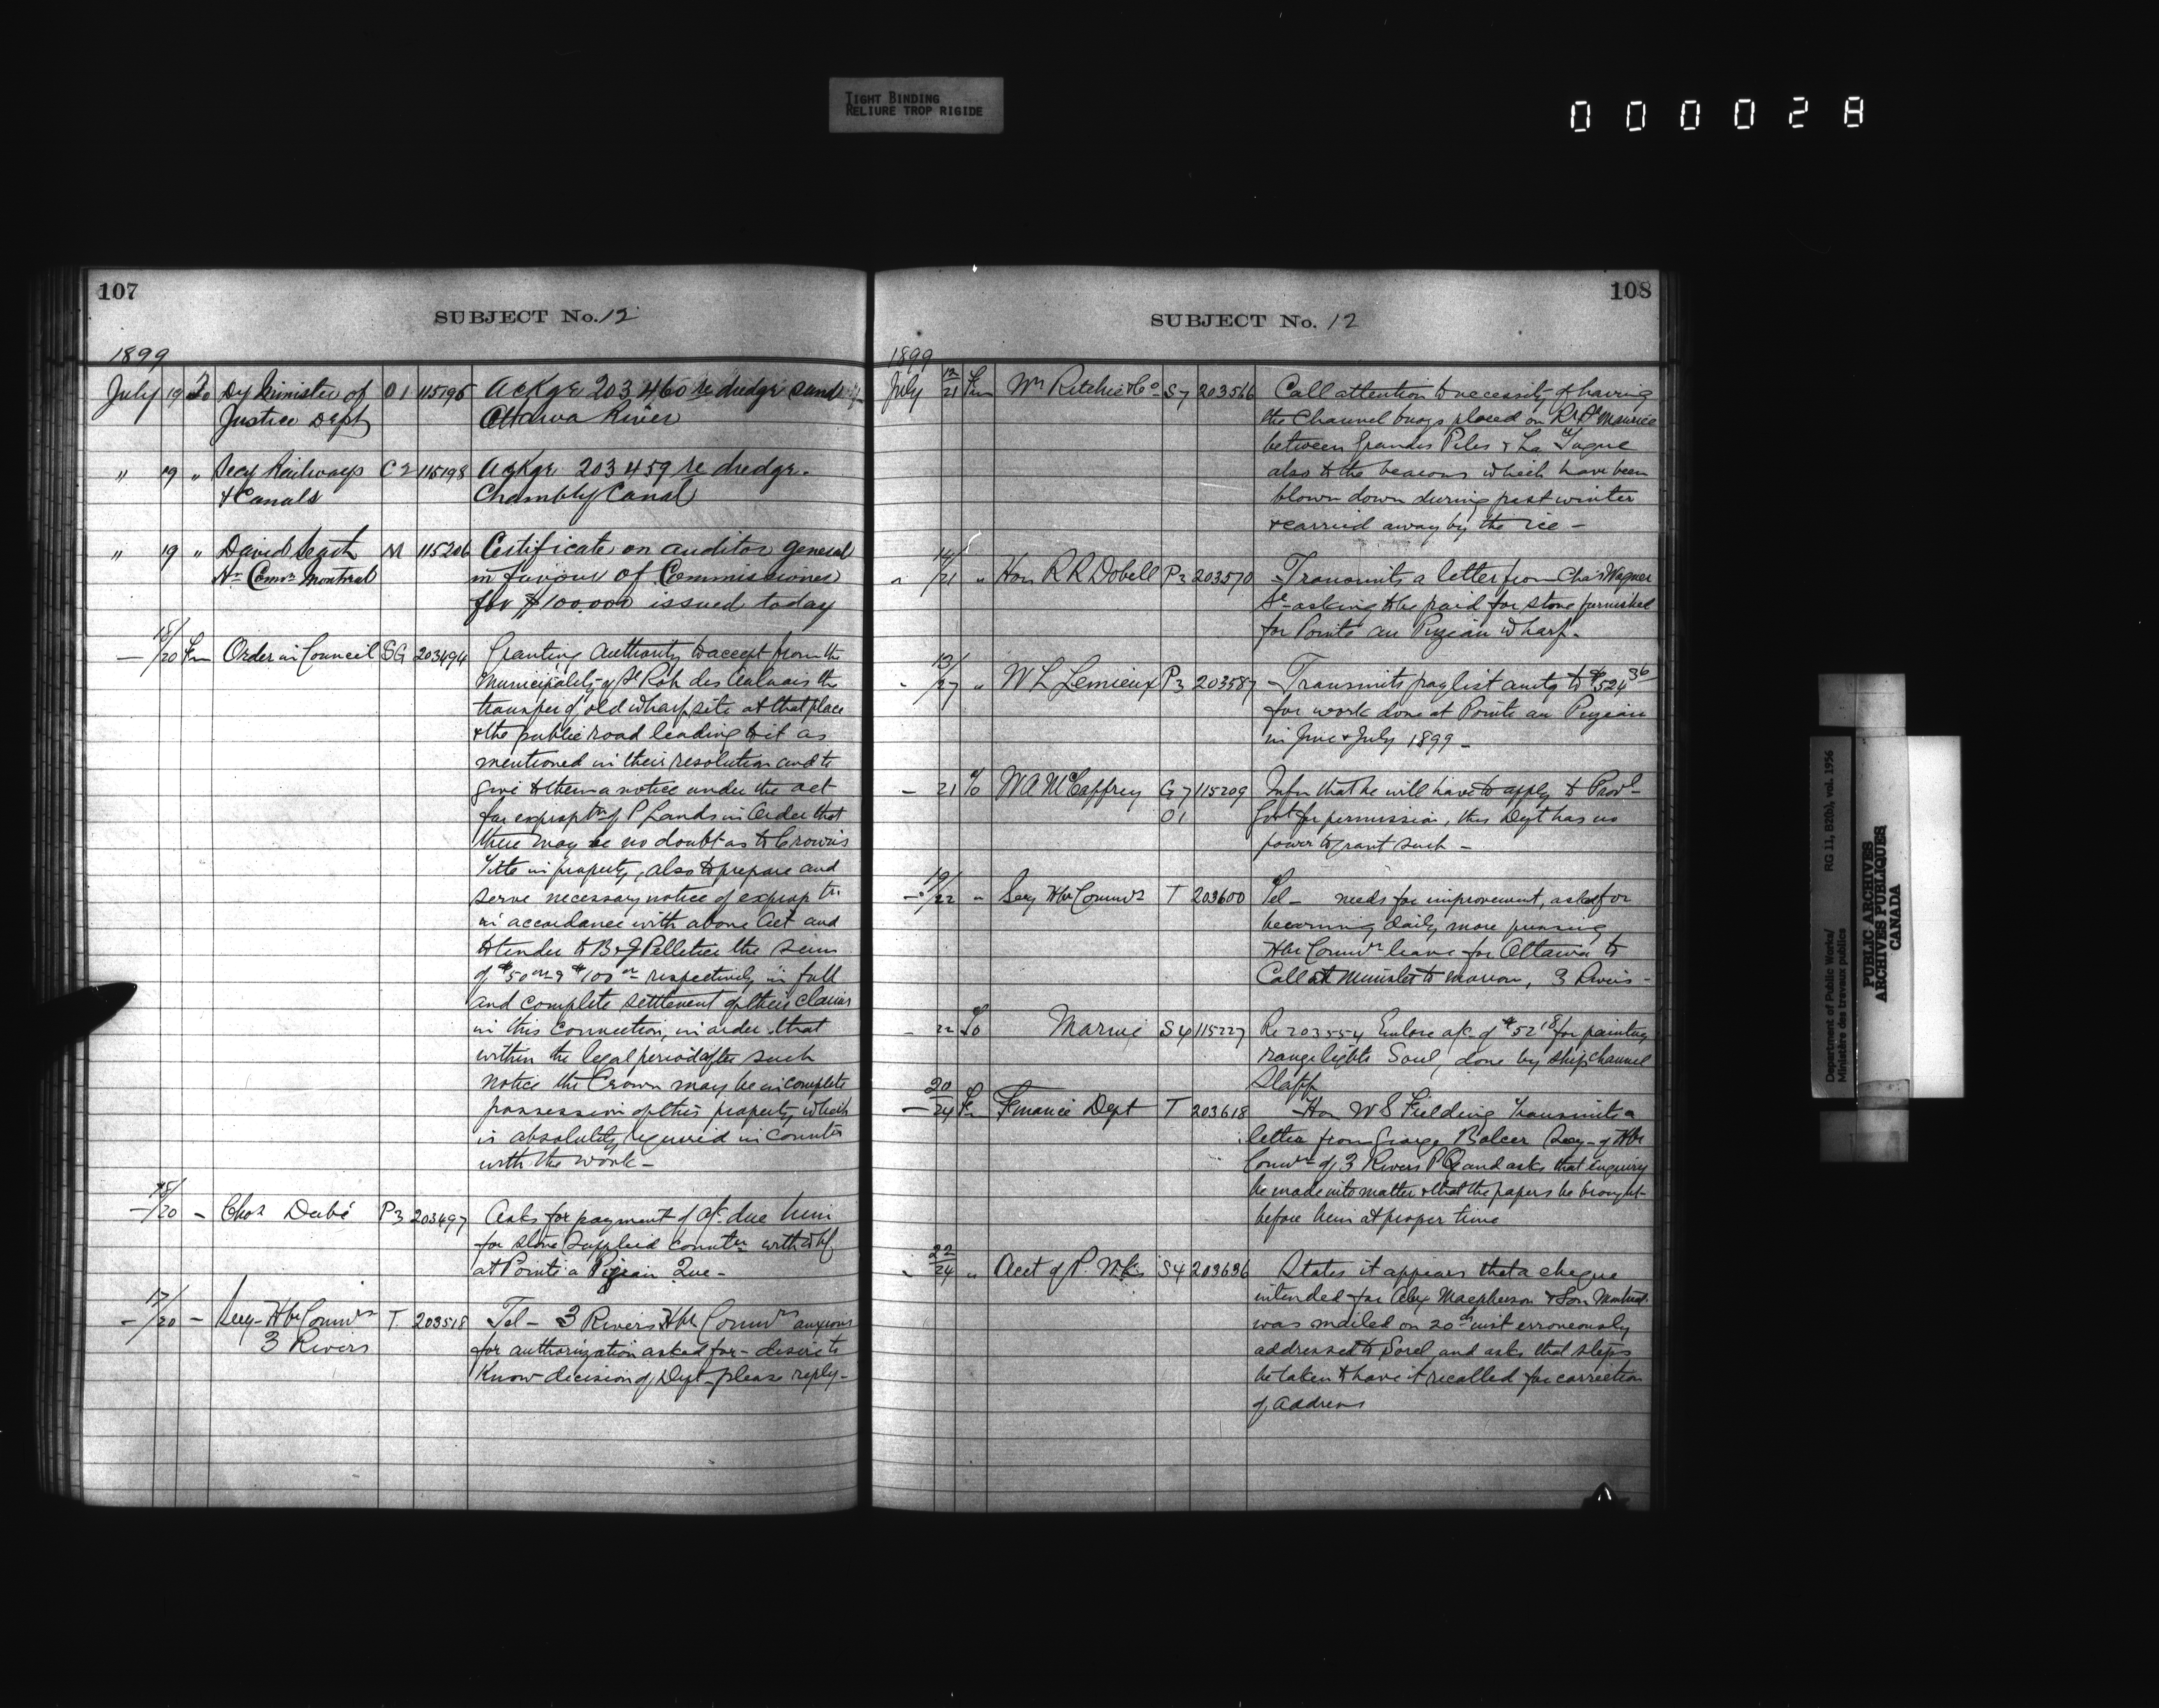 TIGHT BINDING
RELIURE TROP RIGIDE
000028
107
SUBJECT No. 12
1899
July 19 To Dy Minister of O1 115196 Ackge 203460 re dredge sand
Justice Dept Ottawa River
" 19 " Secy Railways C2 115198 Ackge 203459 re dredge
& Canals Chambly Canal
" 19 " David Seath M 115206 Certificate on auditor general
Hr Comrs Montreal in favour of Commissioners
for $100.000 issued today
18/20 Fm Order in Council SG 203494 Granting authority to accept from the
Municipality of St Roch des Aulnais the
transfer of old wharf site at that place
& the public road leading to it as
mentioned in their resolution and to
give to them a notice under the act
for exproptn of P Lands in Order that
there may be no doubt as to Crown's
Title in property, also to prepare and
serve necessary notice of exprop tn
in accordance with above Act and
to tender to B & J Pelletier the sum
of $50 & $100 respectively in full
and complete settlement of their claims
in this connection, in order that
within the legal period after such
notice the Crown may be in complete
possession of this property which
is absolutely required in connctn
with the work -
15/20 - Chas Dubé P3 203497 Asks for payment of a/c due him
for stone supplied connctn with wf
at Pointe a Pigeau Que -
17/20 - Secy Hbr Commrs T 203518 Tel - 3 Rivers Hbr Commrs anxious
3 Rivers for authorization asked for - desire to
Know decision of Dept - please reply -
108
SUBJECT No. 12
1899
July 12/21 Fm Wm Ritchie & Co S7 203566 Call attention to necessity of having
the Channel buoys placed on R St Maurice
between Grandes Piles & La Tuque
also to the beacons which have been
blown down during past winter
& carried away by the ice -
" 14/21 " Hon R R Dobell P3 203570 - Transmits a letter from Chas Wagner
Sr asking to be paid for stone furnished
for Pointe au Pizeau wharf.
- 13/27 " W L Lemieux P3 203587 - Transmits paylist amtg to $524 36
for work done at Pointe au Pizeau
in June & July 1899 -
- 21 To W A McCaffrey G7 115209 Infm that he will have to apply to Provl
O1 Govt for permission, this Dept has no
power to grant such -
- 19/22 " Secy Hbr Commrs T 203600 Tel - needs for improvement, asked for
becoming daily more pressing
Hbr Commrs leave for Ottawa to
Call at Minister to morrow, 3 Rivers -
- 22 To Marine S4 115227 Re 203554 Enclose a/c of $52 18 for painting
range lights Sorel, done by ship channel
Staff
- 20/24 Fm Finance Dept T 203618 - Hon W S Fielding transmits a
letter from George Balcer Secy - of Hbr
Commrs of 3 Rivers P Q and asks that enquiry
be made into matter & that the papers be brought
before him at proper time
- 22/24 " Acct of P. Wks S4 203636 States it appears that a cheque
intended for Alex Macpherson & Son Montreal
was mailed on 20th inst erroneously
addressed to Sorel and asks that steps
be taken to have it recalled for correction
of address
Department of Public Works/ RG 11, B2(b), vol. 1956
Ministère des travaux publics
PUBLIC ARCHIVES
ARCHIVES PUBLIQUES
CANADA